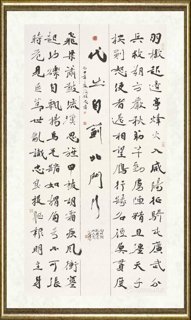 羽檄起邊亭烽火入咸陽征騎屯廣武分
兵救朔方嚴秋筋竿勁虜陣精且強天子
按劍怒使者遙相望雁行緣石徑魚貫度
代出自薊北門行
飛梁簫鼓流漢思旌甲被胡霜疾風衝塞
起沙礫自飄揚馬毛縮如蝟角弓不可張
時危見臣節世亂識忠良投軀報明主身